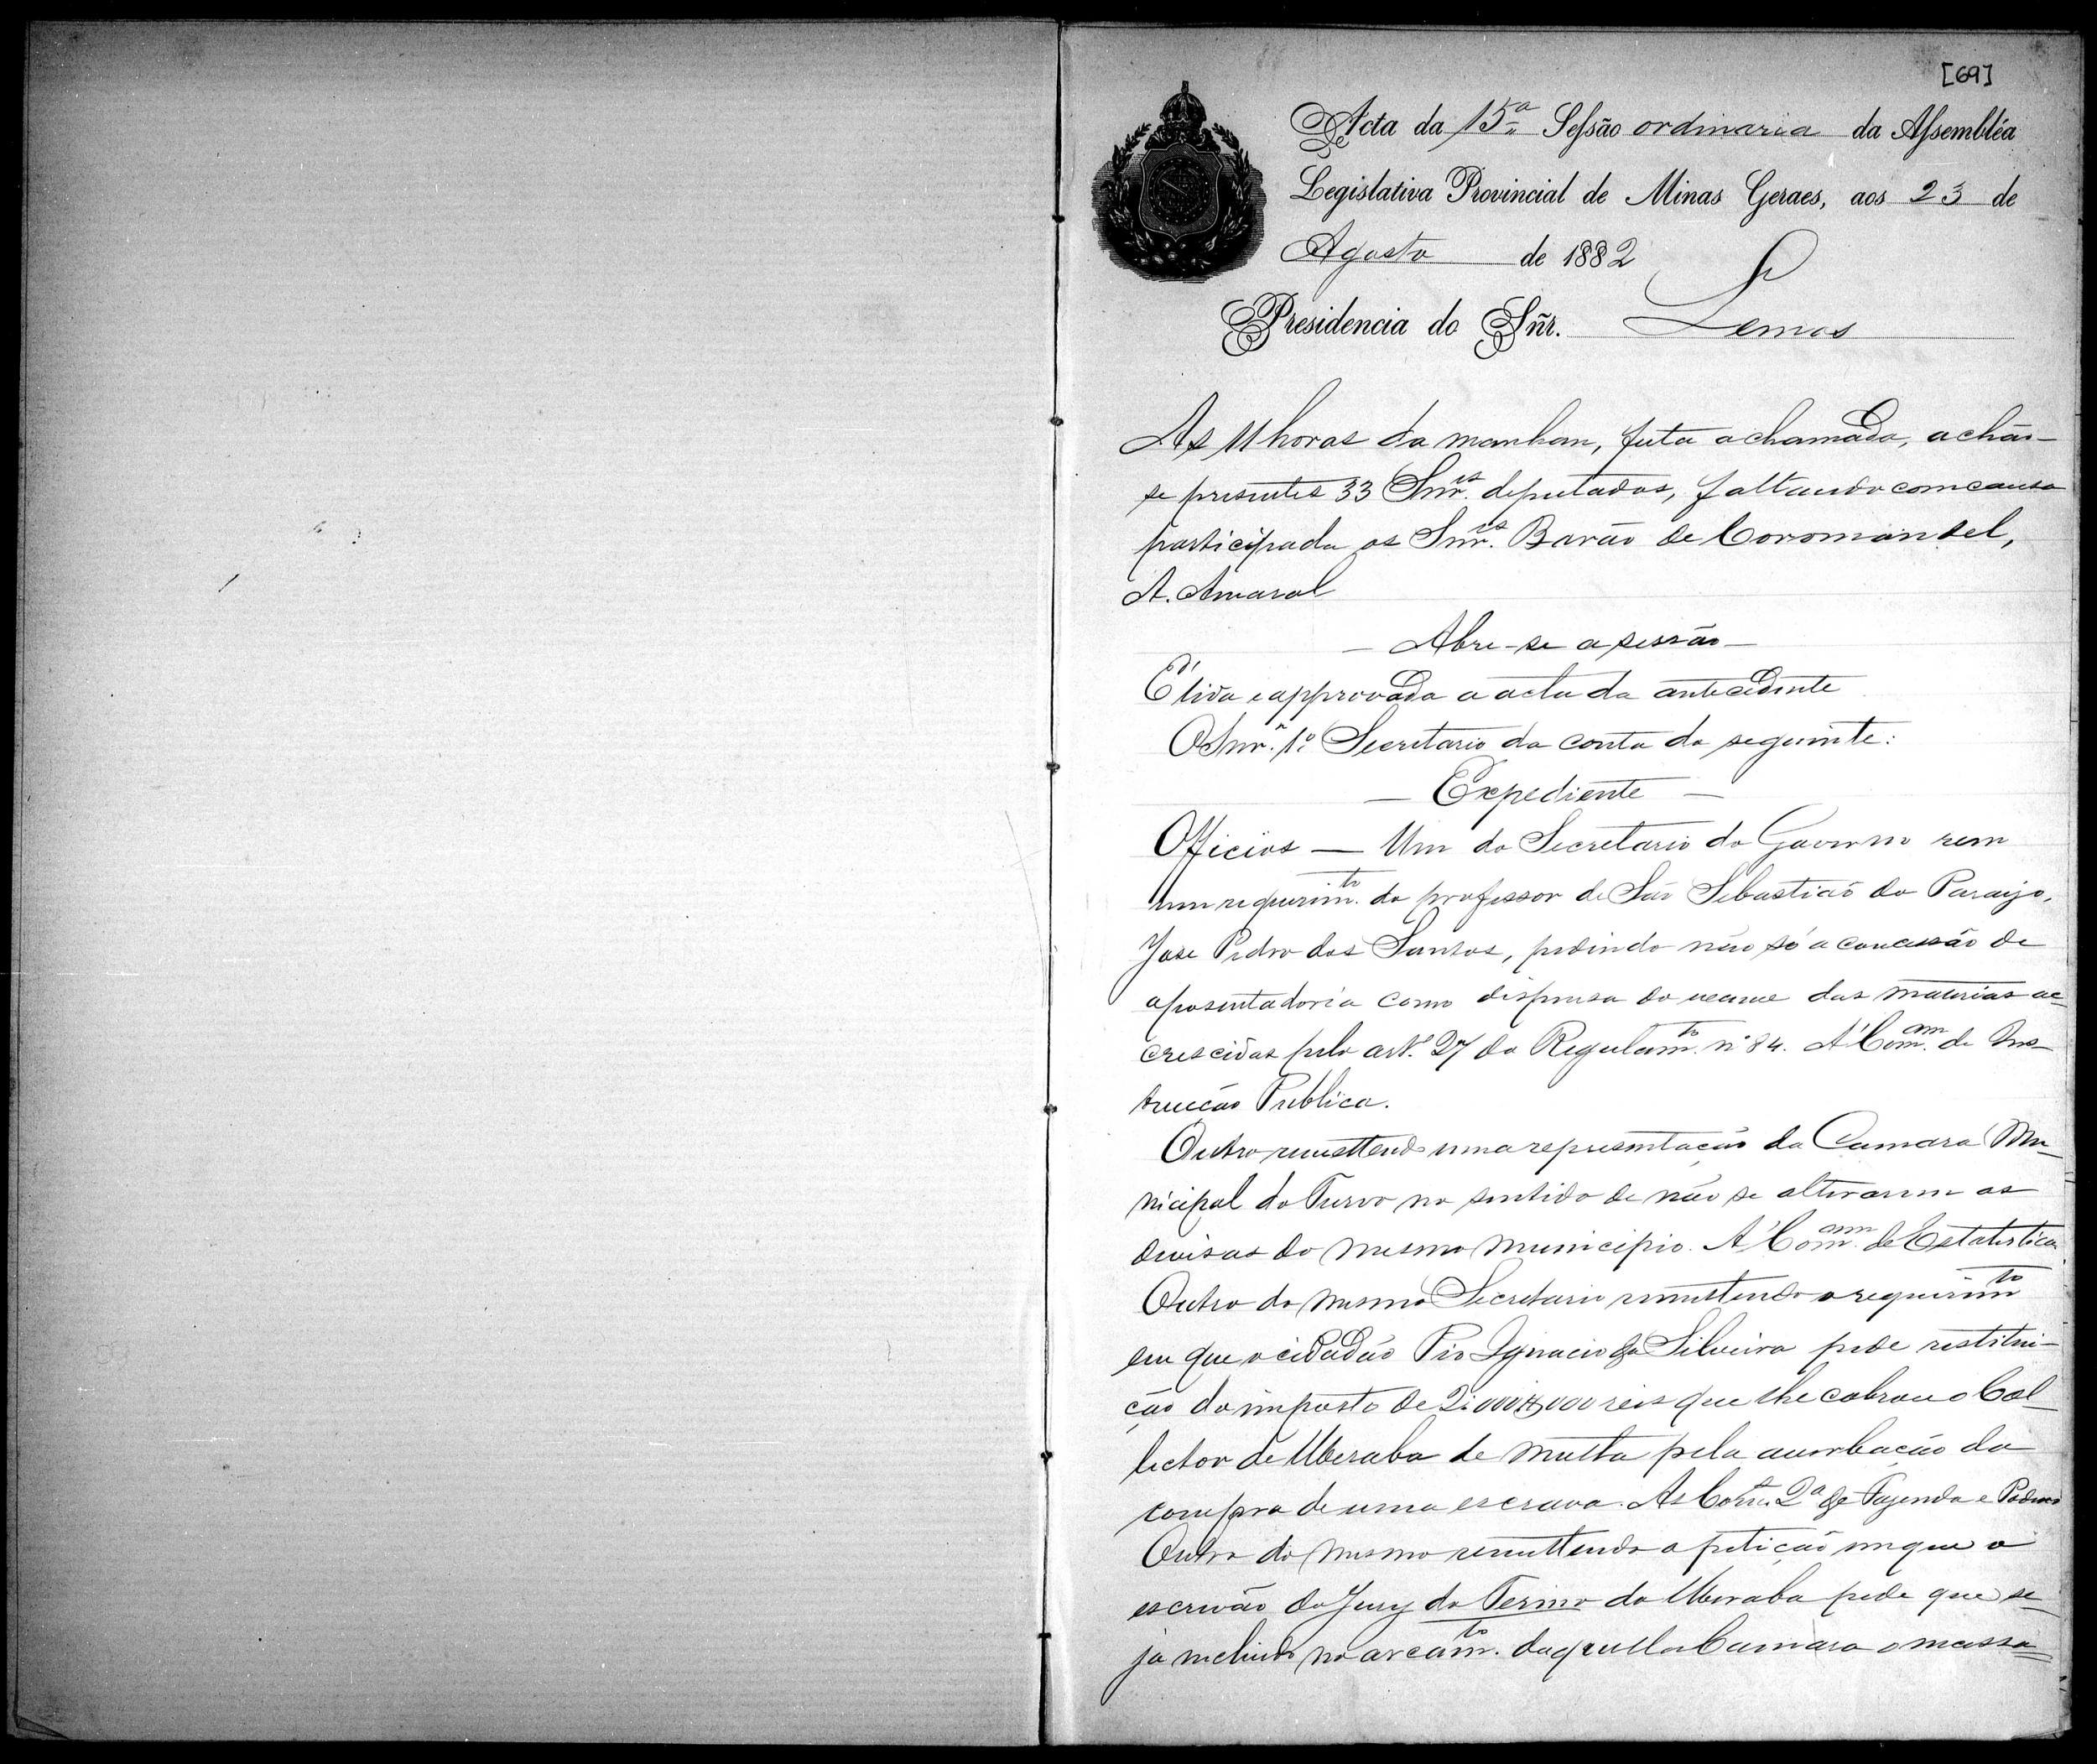 [69]
Acta da 15ª Sessão ordinaria da Assembléa
Legislativa Provincial de Minas Geraes, aos 23 de
Agosto de 1882
Presidencia do Sñr. Lemos
As 11 horas da manhan, feita a chamada, achão-
se presentes 33 Snr.es deputados, faltando com causa
participada os Snr.es Barão de Coromandel,
A. Amaral
— Abre-se a sessão —
É lida e approvada a acta da antecedente
O Snr. 1º Secretario da conta do seguinte:
— Expediente —
Officios — Um do Secretario do Governo rem
um requerim.to do professor de São Sebastião do Paraizo,
Jose Pedro dos Santos, pedindo não só a concessão de
aposentadoria como dispensa do exame das materias ac-
crescidas pelo art. 27 do Regulam.to nº 84. A' Com.am de Ins-
trucção Publica.
Outro remettendo uma representação da Camara Mu-
nicipal do Turvo no sentido de não se alterarem as
divisas do mesmo municipio. A' Com.am de Estatistica
Outro do mesmo Secretario remettendo o requerim.to
em que o cidadão Pio Ignacio da Silveira pede restitui-
ção do imposto de 2:000$000 reis que lhe cobrou o Col-
lector de Uberaba de multa pela averbação da
compra de uma escrava. As Com.es 2ª de Fazenda e Poderes
Outro do mesmo remettendo a petição em que o
escrivão do Jury do Termo do Uberaba pede que se-
ja incluido no orcam.to daquella Camara o massa